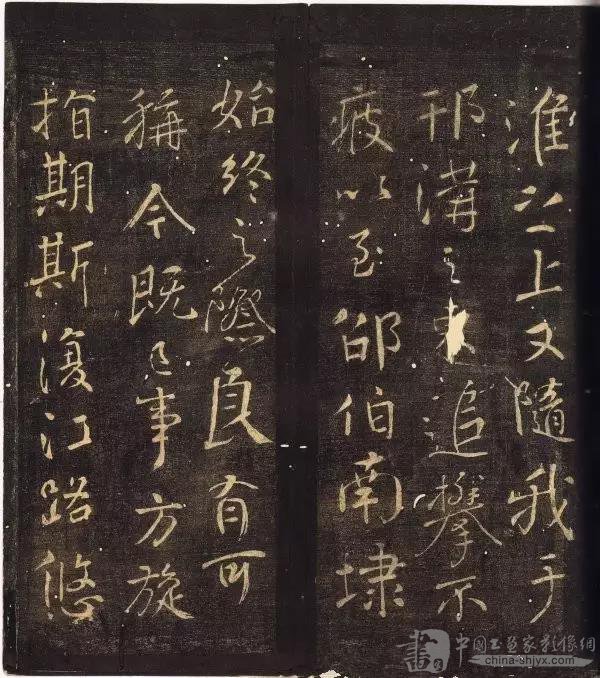 淮之上又隨我于
邗溝之東追攀不
疲以至邵伯南埭
始終之際良有可
稱今既已事方旋
指期斯復江路悠
書 中國書畫家影像網
china-shjyx.com